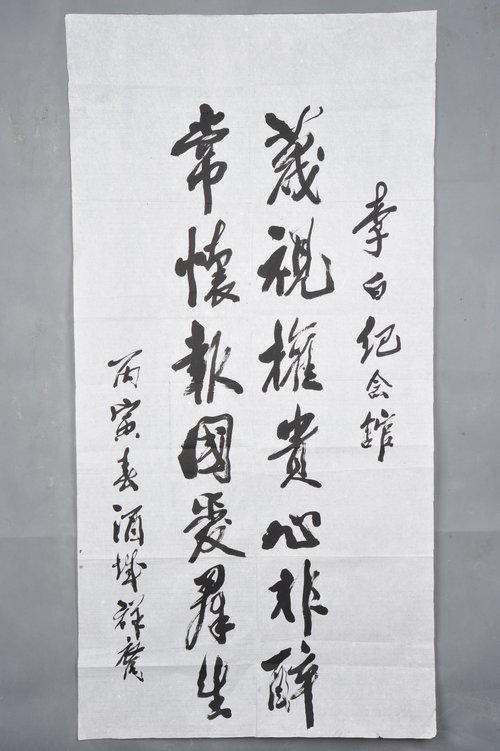 李白纪念館
蔑視權貴心非醉
常懷報國愛羣生
丙寅春酒城群鷹